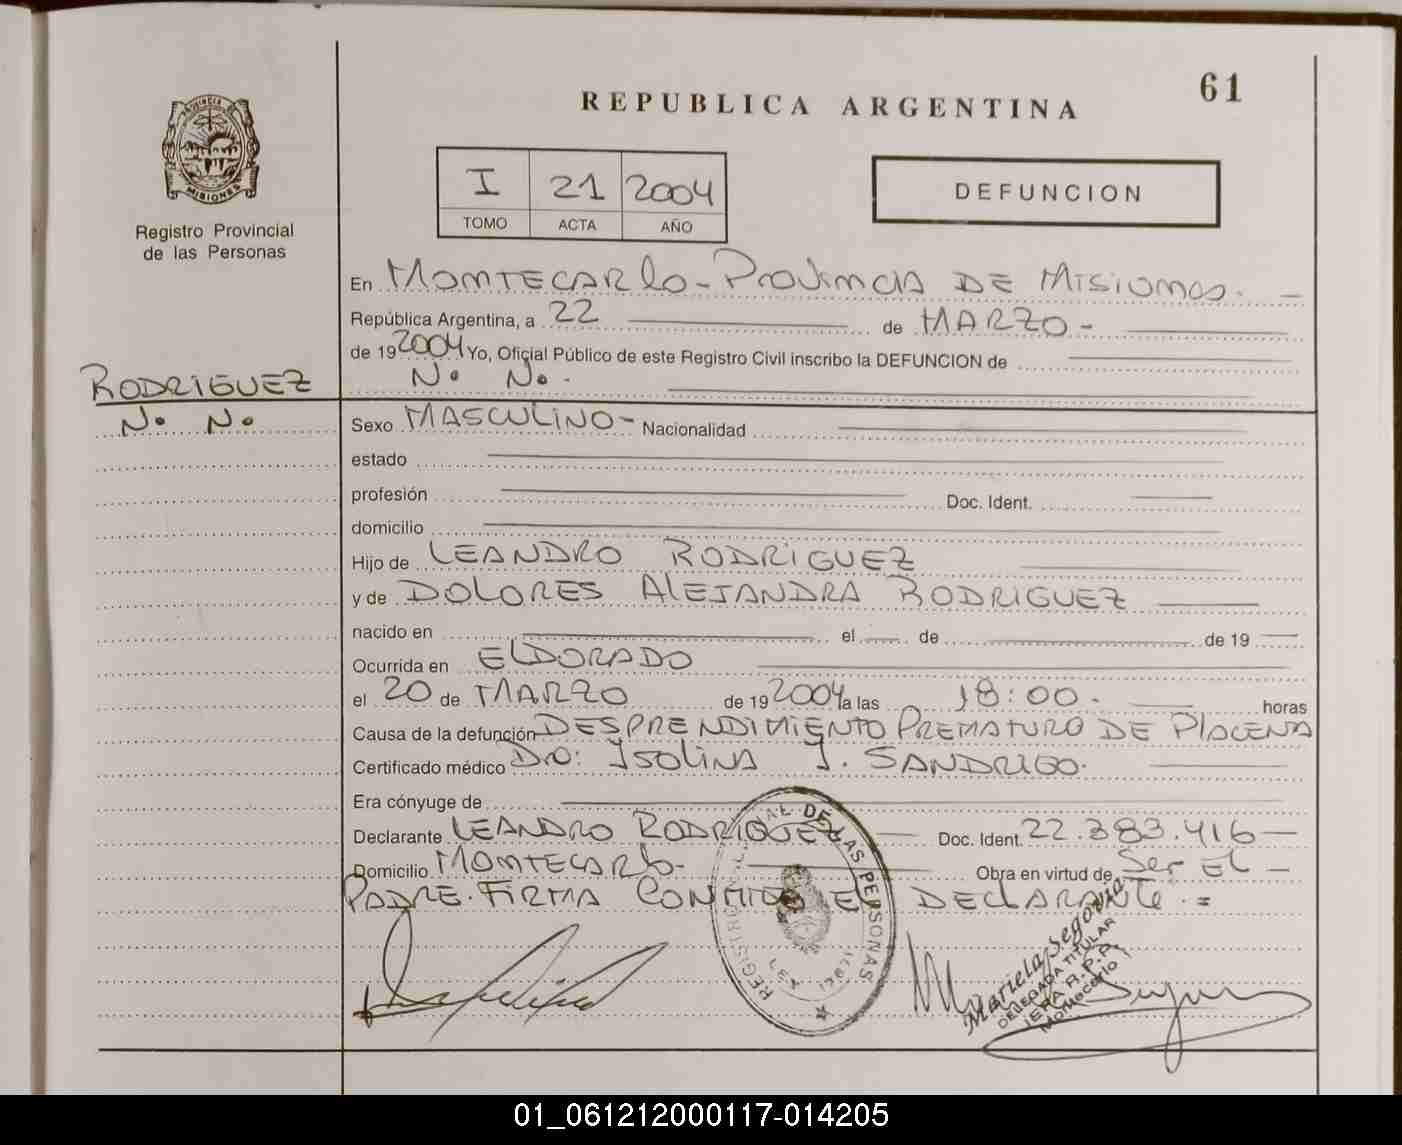 61
REPUBLICA ARGENTINA
PROVINCIA DE
MISIONES
Registro Provincial
de las Personas
I 21 2004
TOMO ACTA AÑO
DEFUNCION
En MONTECARlo - PROVINCIA DE MISIONES.
República Argentina, a 22 de MARZO -
de 19 2004 Yo, Oficial Público de este Registro Civil inscribo la DEFUNCION de
N. N. -
RODRIGUEZ
N. N.
Sexo MASCULINO - Nacionalidad
estado
profesión Doc. Ident.
domicilio
Hijo de LEANDRO RODRIGUEZ
y de DOLORES ALEJANDRA RODRIGUEZ
nacido en el de de 19
Ocurrida en ELDORADO
el 20 de MARZO de 19 2004 a las 18:00. horas
Causa de la defunción DESPRENDIMIENTO PREMATURO DE PlACENA
Certificado médico Dra: ISOLINA J. SANDRIGO.
Era cónyuge de
Declarante LEANDRO RODRIGUEZ Doc. Ident. 22.383.416
Domicilio MONTECARlo - Obra en virtud de Ser EL
PADRE. FIRMA CONMIGO EL DEClARANTE. =
REGISTRO PROVINCIAL DE LAS PERSONAS
Mariela Segovia
DELEGADA TITULAR
R.P.P.
Montecarlo
01_061212000117-014205